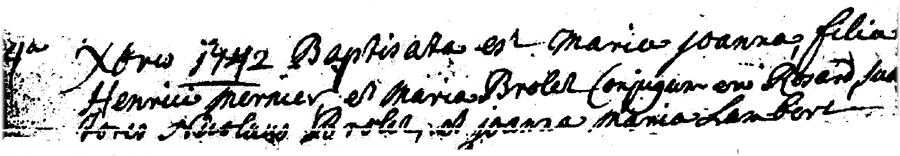 4a Xbris 1742 Baptisata est Maria joanna, filia
Henrici mernier, et Maria Brolet Conjugum en Rosard, sus
toris Nicolaus Brolet, et joanna maria Lambert